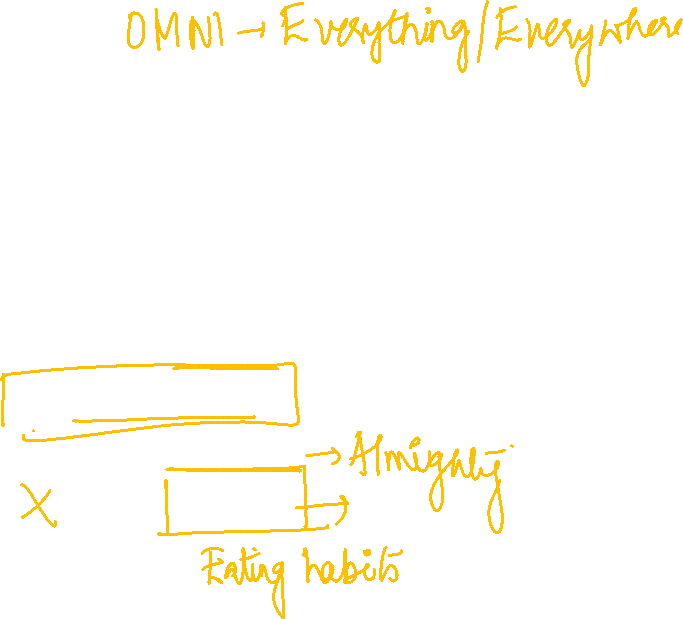 OMNI → Everything/Everywhere
→ Almighty
X
Eating habits